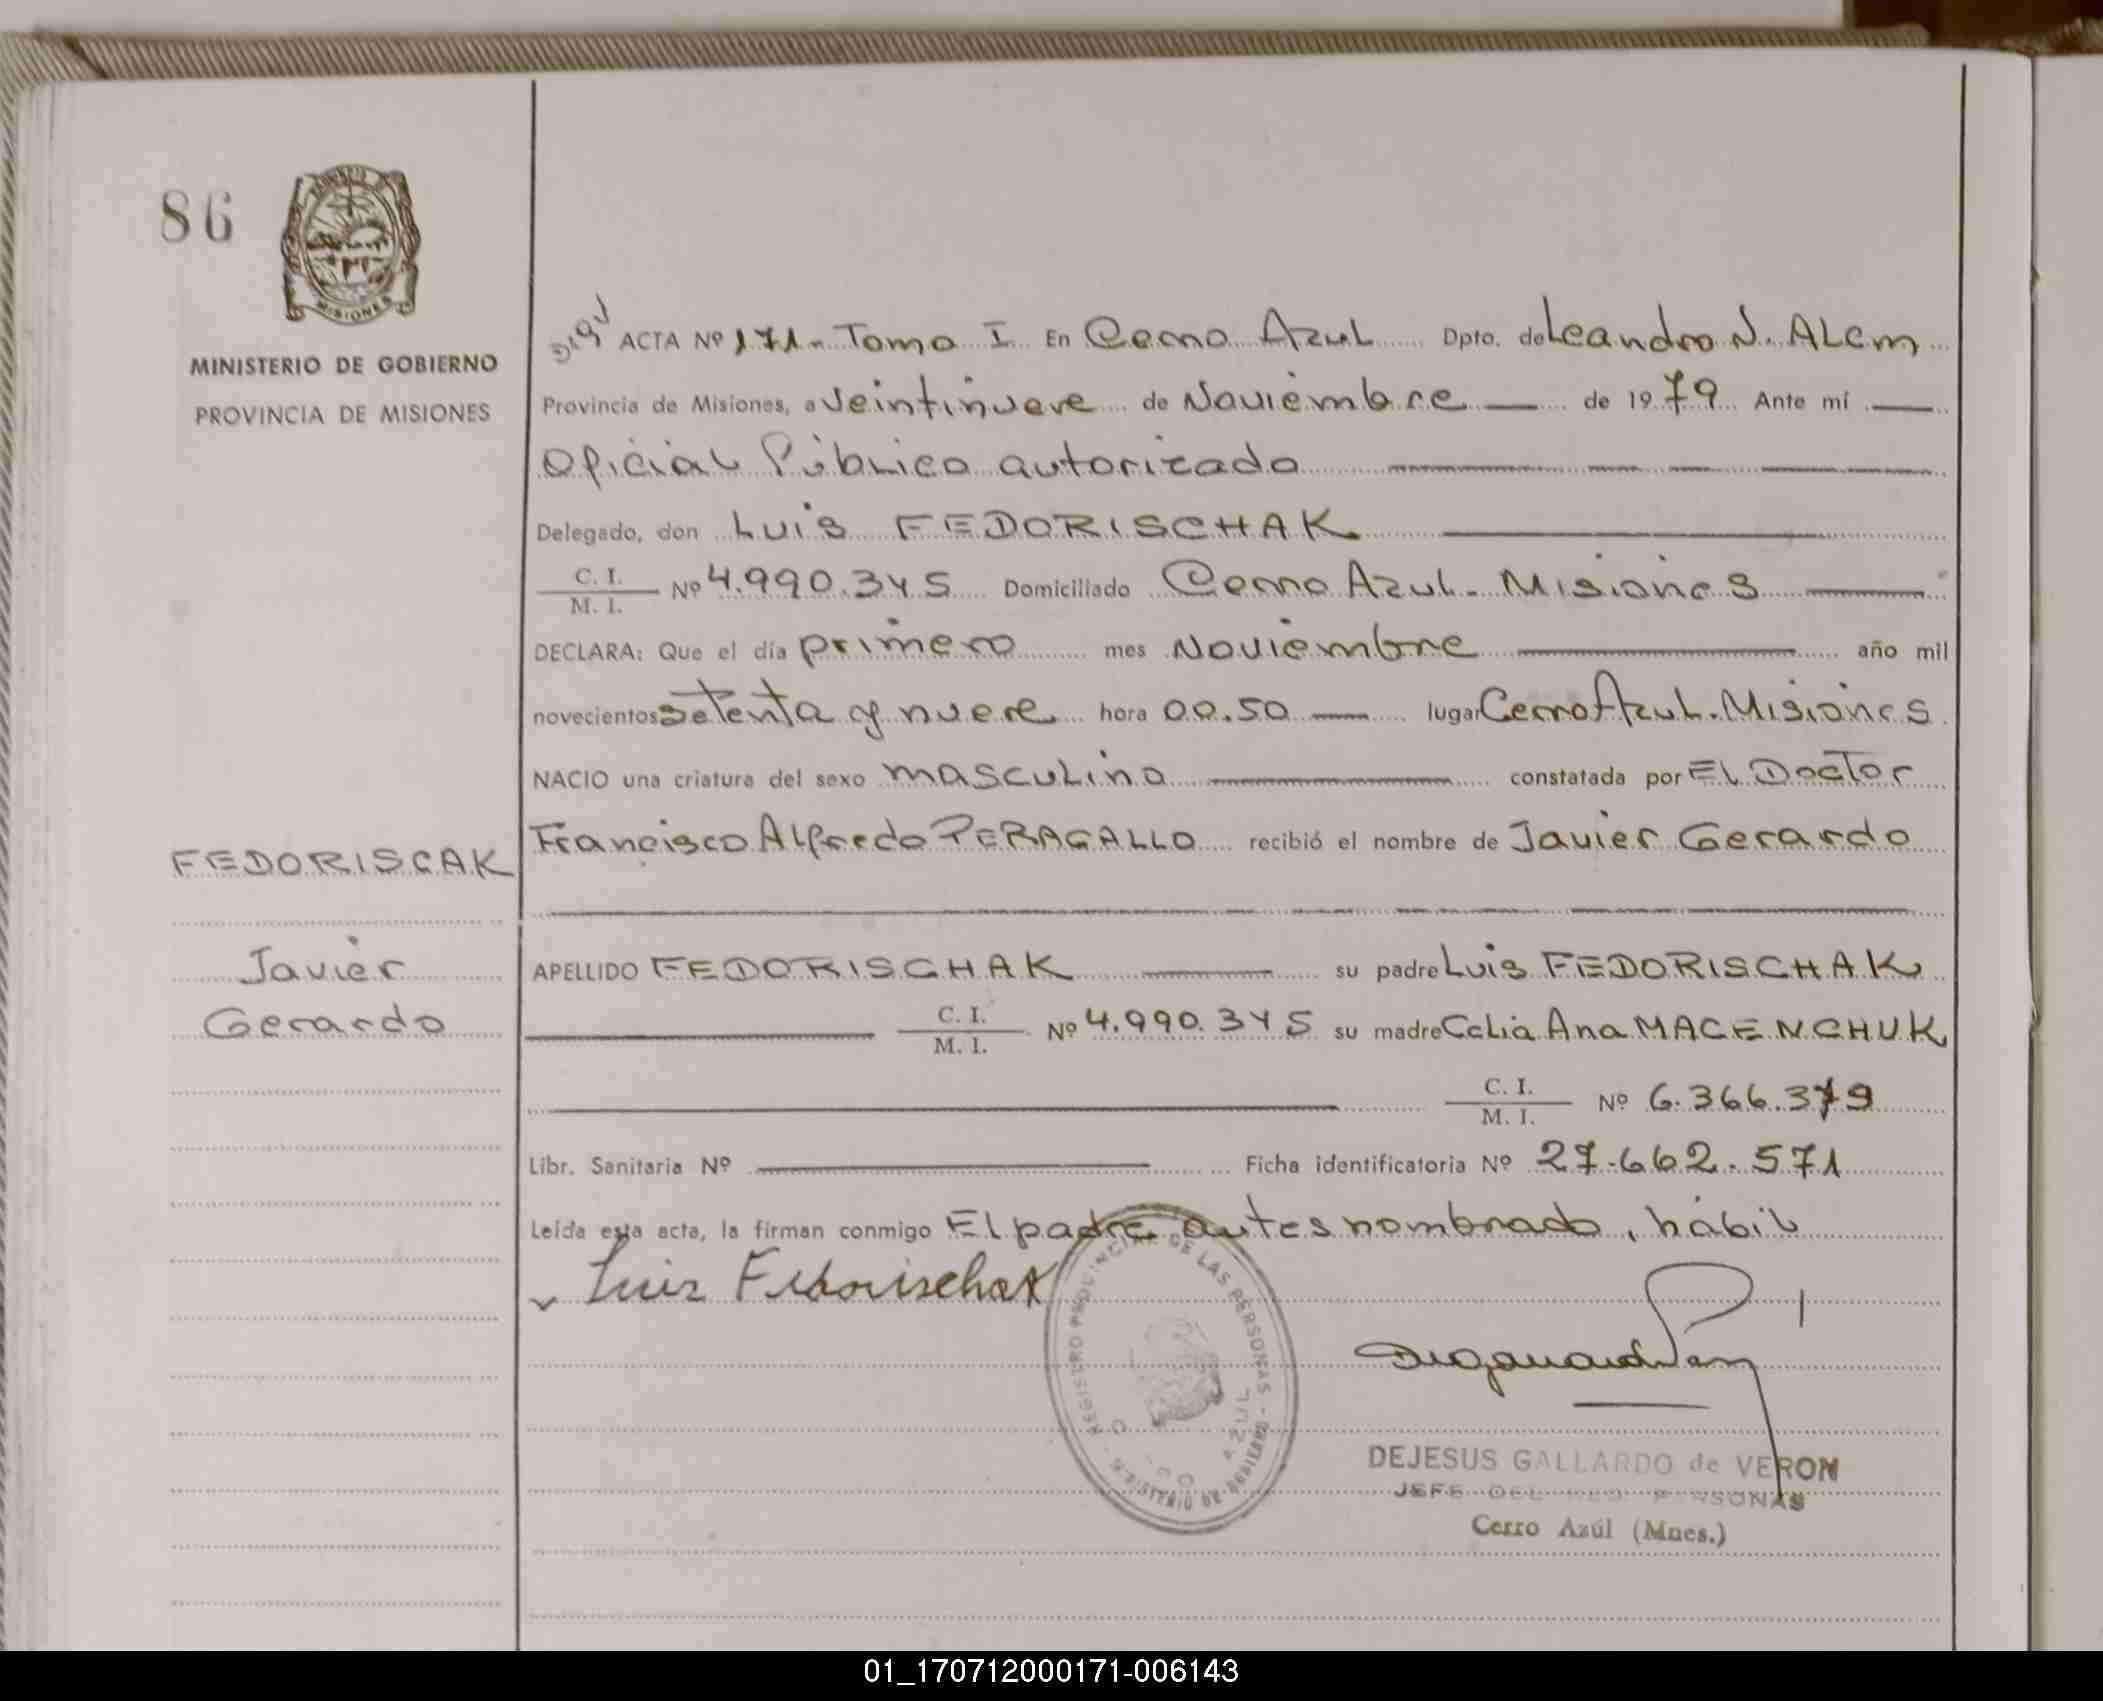 86
MISIONES
MINISTERIO DE GOBIERNO
PROVINCIA DE MISIONES
ACTA Nº 171- Tomo I En Cerro Azul Dpto. de Leandro N. Alem
Provincia de Misiones, a veintinueve de Noviembre de 1979 Ante mí
Oficial Público autorizado
Delegado, don Luis FEDORISCHAK
C. I.
M. I. Nº 4.990.345 Domiciliado Cerro Azul - Misiones
DECLARA: Que el día primero mes Noviembre año mil
novecientos setenta y nueve hora 00.50 lugar Cerro Azul. Misiones
NACIO una criatura del sexo masculino constatada por El Doctor
Francisco Alfredo PERAGALLO recibió el nombre de Javier Gerardo
FEDORISCAK
Javier
Gerardo
APELLIDO FEDORISCHAK su padre Luis FEDORISCHAK
C. I.
M. I. Nº 4.990.345 su madre Celia Ana MACENCHUK
C. I.
M. I. Nº 6.366.379
Libr. Sanitaria Nº Ficha identificatoria Nº 27.662.571
Leída esta acta, la firman conmigo El padre antes nombrado, hábil
Luis Fedorischak
REGISTRO PROVINCIAL DE LAS PERSONAS - MINISTERIO DE GOBIERNO
AZUL
DEJESUS GALLARDO de VERON
JEFE DEL REG. PERSONAS
Cerro Azúl (Mnes.)
01_170712000171-006143